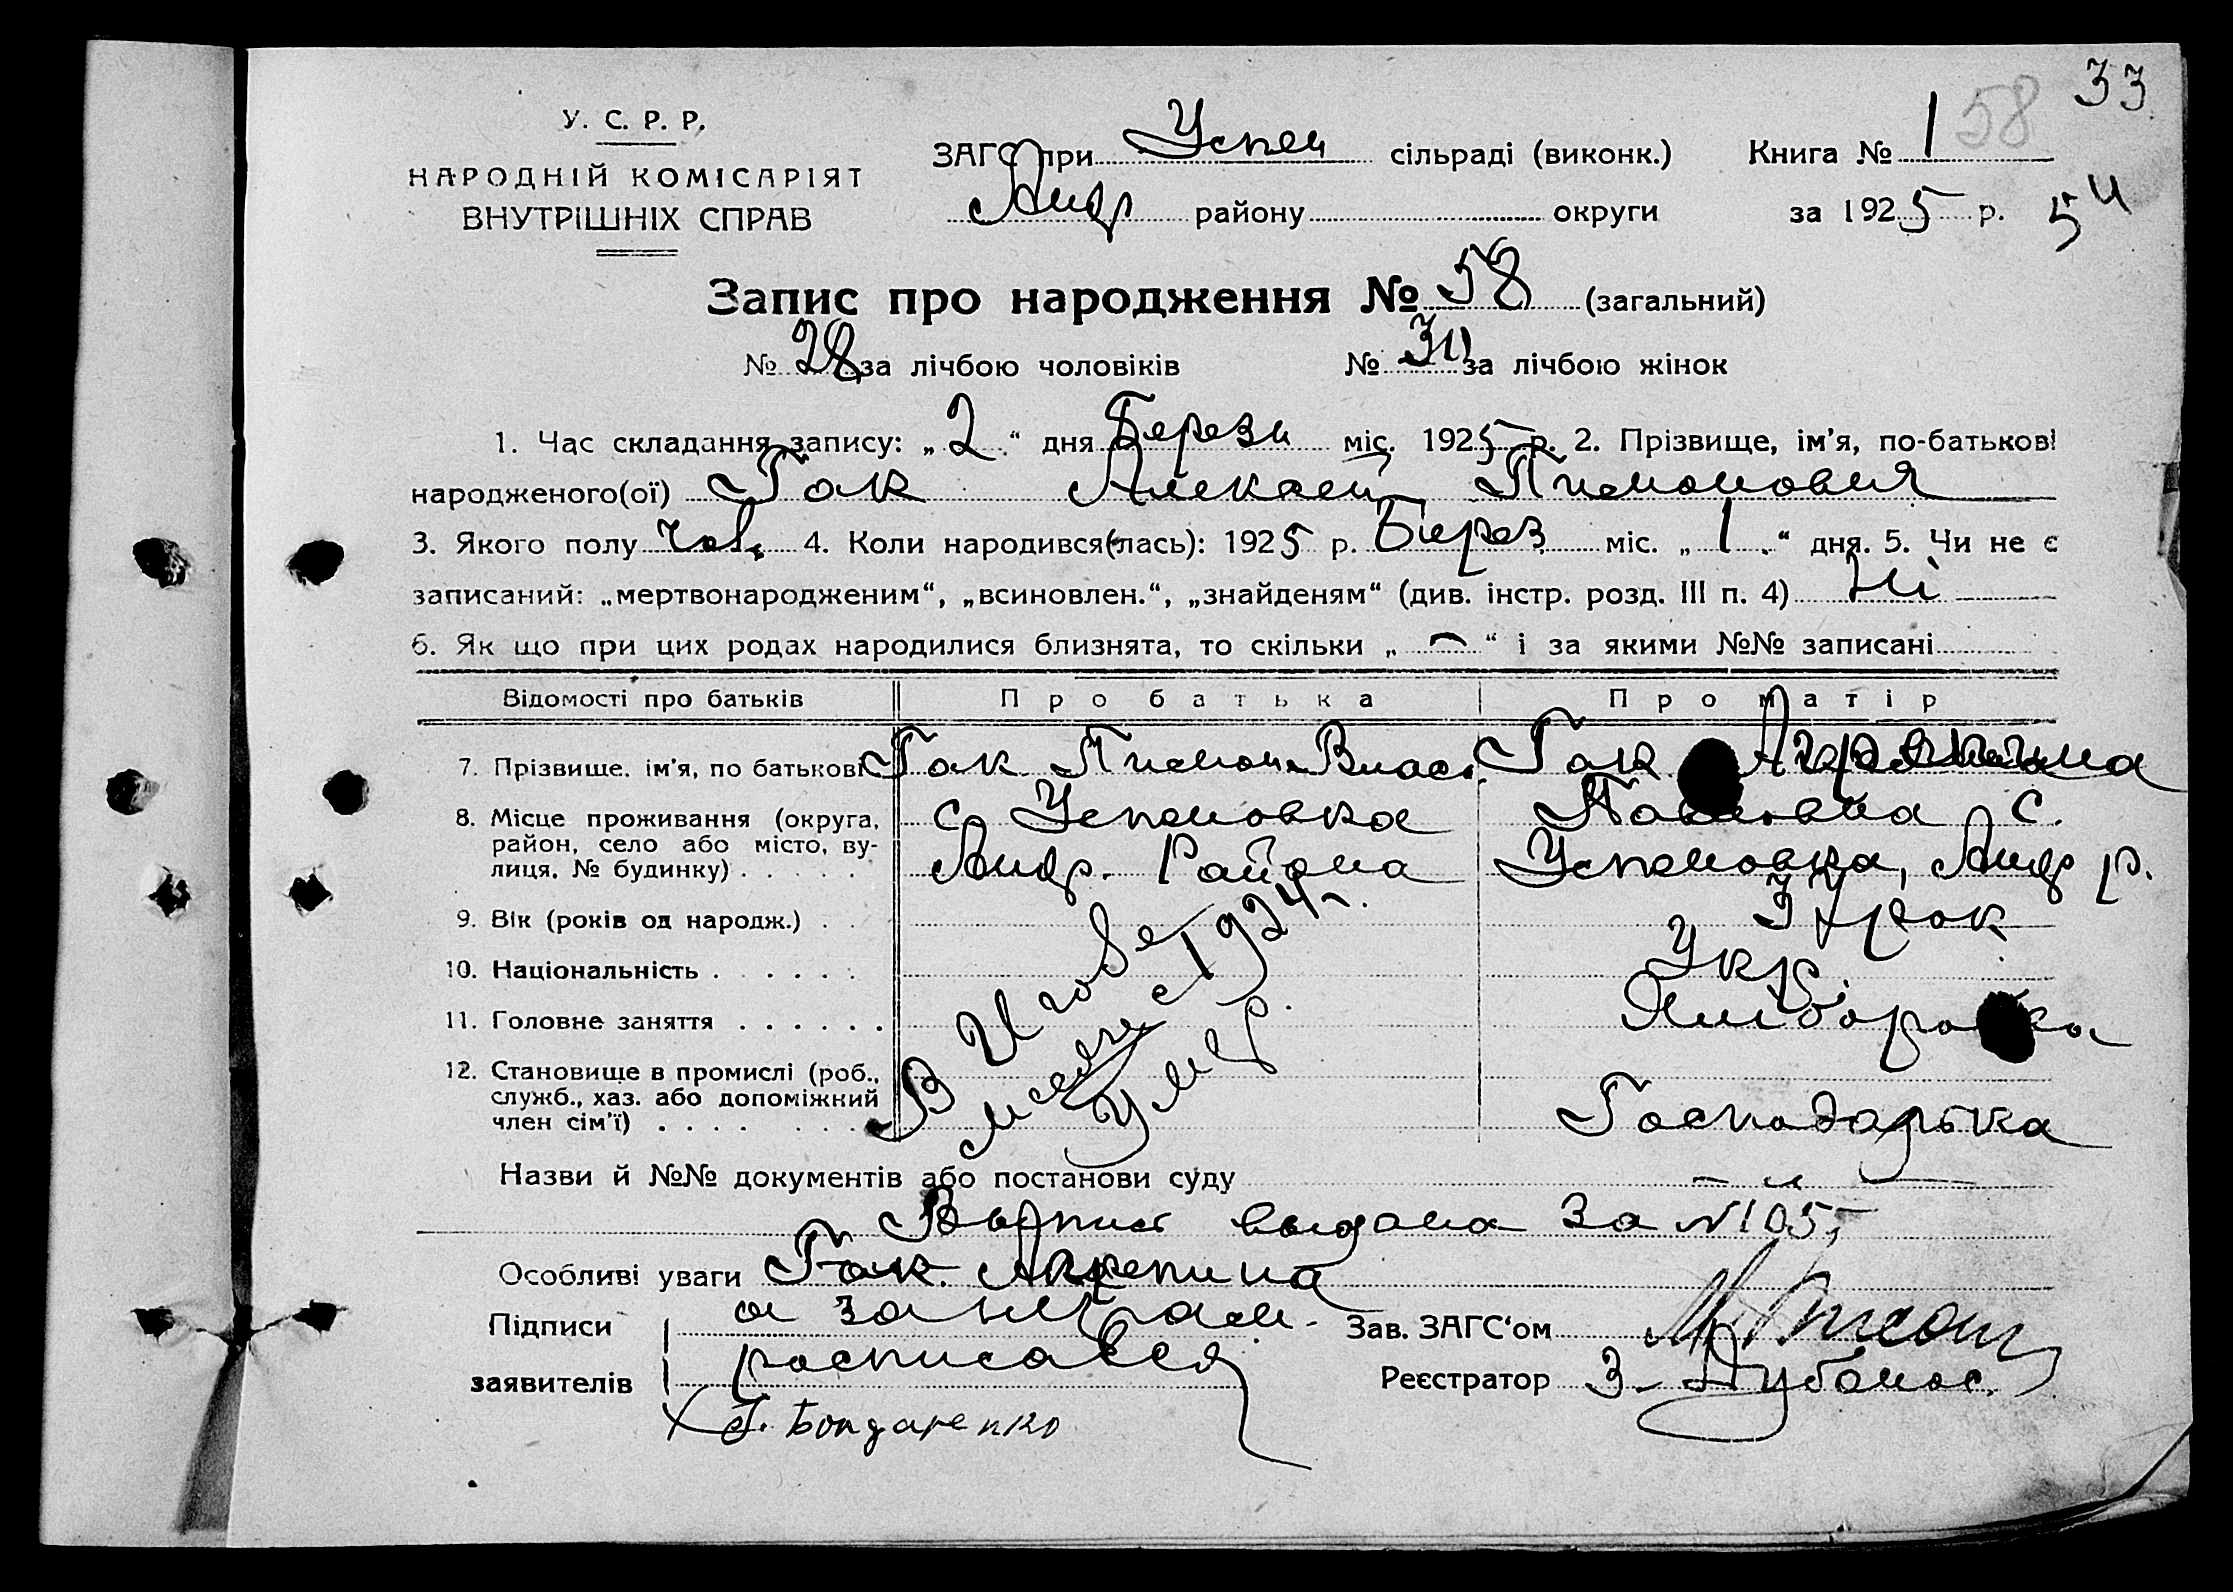 33
У. С. Р. Р.
НАРОДНІЙ КОМІСАРІЯТ
ВНУТРІШНІХ СПРАВ
ЗАГС при Успен сільраді (виконк.) Книга № 1 58
Андр району округи за 1925 р. 54
Запис про народження № 58 (загальний)
№ 28 за лічбою чоловіків № 30 за лічбою жінок
1. Час складання запису: „ 2 “ дня Березн міс. 1925 р. 2. Прізвище, ім'я, по-батькові
народженого(ої) Гак Алексей Пимонович
3. Якого полу чов. 4. Коли народився(лась): 1925 р. Берез міс. „ 1 “ дня. 5. Чи не є
записаний: „мертвонародженим“, „всиновлен.“, „знайденям“ (див. інстр. розд. III п. 4) Ні
6. Як що при цих родах народилися близнята, то скільки „ — “ і за якими №№ записані
Відомості про батьків Про батька Про матір
7. Прізвище, ім'я, по батькові Гак Пимон Влас. Гак
8. Місце проживання (округа, район, село або місто, вулиця, № будинку) с. Успеновка Павловна с.
Андр. Району Успеновка, Андр р.
9. Вік (років од народж.) 34 рок
10. Національність Укр.
11. Головне заняття
12. Становище в промислі (роб., служб., хаз. або допоміжний член сім'ї) Господарька
В Июле
месяце с 1924 г.
умер.
Назви й №№ документів або постанови суду
Выпись выдана за № 105
Особливі уваги Гак.
Підписи а за неграм. Зав. ЗАГС'ом
заявителів росписався Реєстратор З. Дубонос
Бондаренко